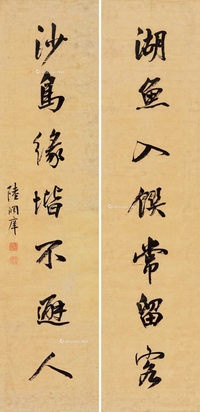 湖魚入饌常留客
沙鳥緣堦不避人
陸潤庠